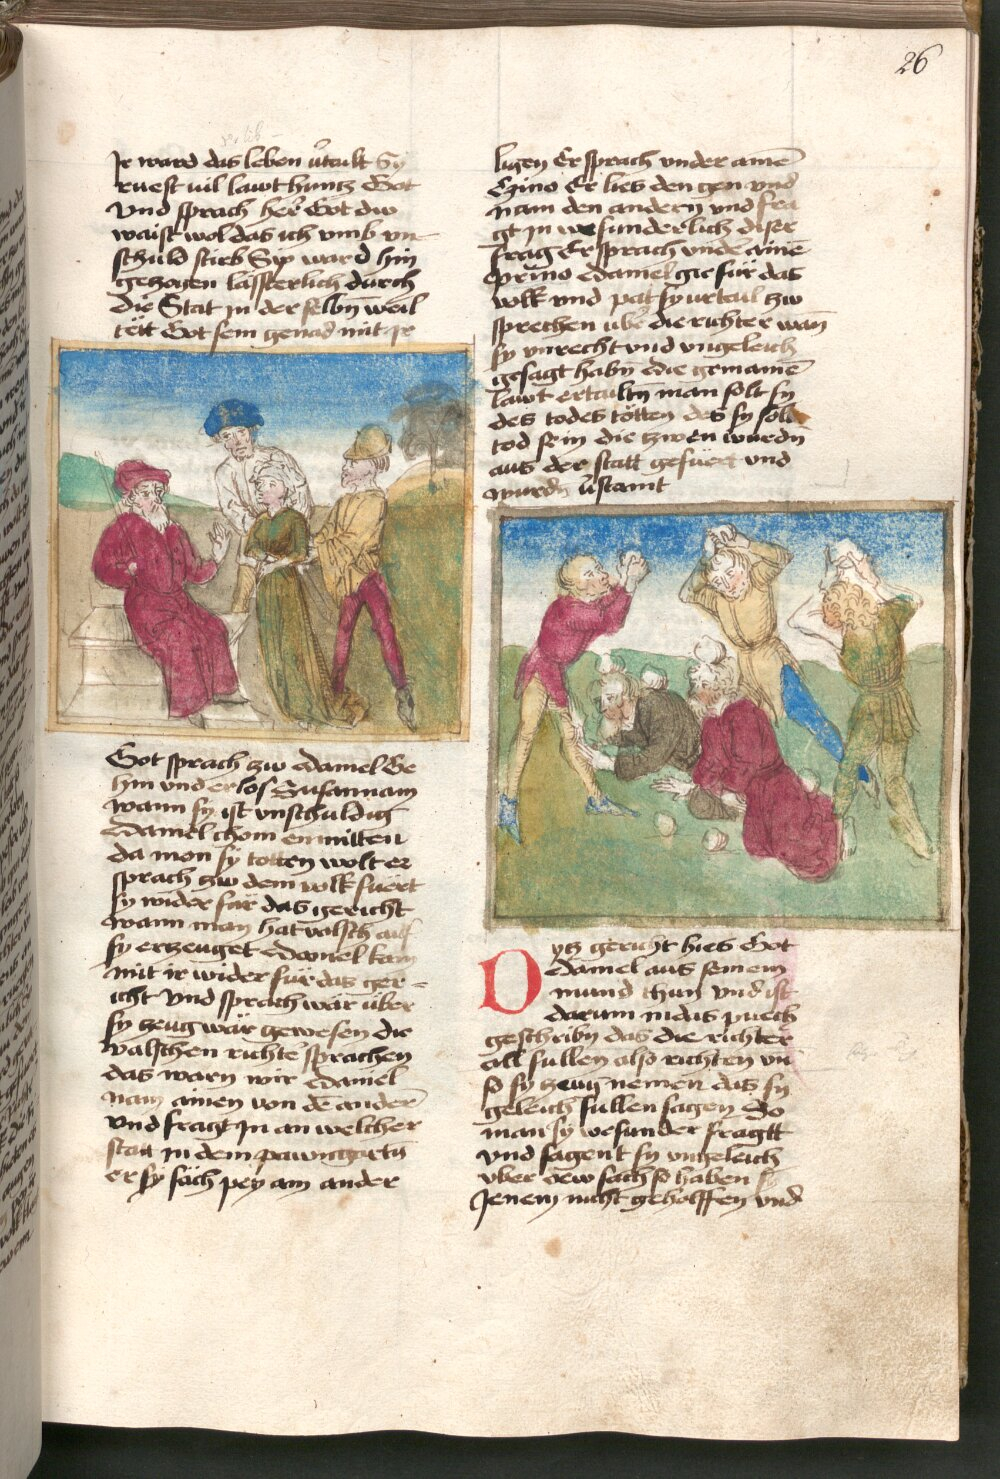 26
Jr ward das leben v̈ertailt Sy
rueft vil lawt huntz Got
Vnd sprach her̄ Got dw
waist wol das ich vmb vn-
schuld stirb Sy ward hin
gezogen lästerlich durch
die Stat in der selbn̄ weil
tett Got sein genad mit ir
Got sprach zw daniel Ge
hin vnd erlös Susannam
wann sy ist vnschuldig
daniel chom enmitten
da man sy tötten wolt er
sprach zw dem volk fuert
sy wider für das gericht
wann man hat valsch auf
sy erzeuget daniel kam
mit ir wider für das ger-
icht Vnd sprach wär über
sy zeug wär gewesen die
valschen richter sprachen
das warn wir daniel
nam ainen von dē ander̄
Vnd fragt Jn an welcher
statt in dem pawngartn̄
er sy säch pey am ander
ligen Er sprach vnder ainē
Cyino Er lies den gen vnd
nam den andern vnd fra
gt in wesunderlich diser
frag Er sprach vnder ainē
prino daniel gie für das
volk vnd pat sy vrteil zw
sprechen über die richter wan̄
sy vnrecht vnd vngeleich
gesagt habn̄ die gemainē
lawt ertailtn̄ man solt sy
des todes tötten des sy solt
tod sein die zwen wurdn̄
aus der statt gefüert vnd
wurdn̄ v̈staint
Dytz gericht hies Got
daniel aus seinem
mund thun vnd ist
darum in das puech
geschribn̄ das die richter
all süllen also richten vn̄
so sy zeug nemen das sy
geleich süllen sagen So
man sy wesunder fragtt
vnd sagent sy vngeleich
vber dew sach so haben sy
Jenem nicht geholffen vnd